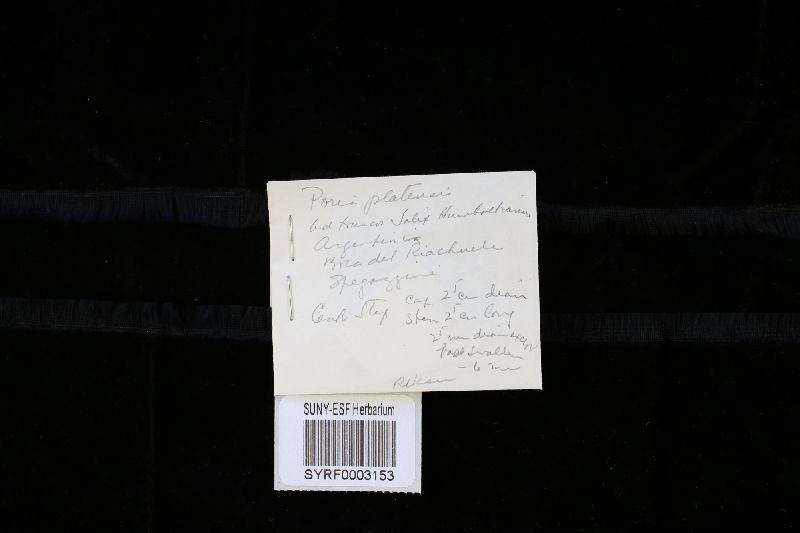 Poria platensis
ad truncos Salix Humboltianus
Argentinia
Boca del Riachuelo
Spegazzini
Cent Stip Cap 2.5 cm diam
Stem 2.5 cm long
2.5 mm diam
base swollen
- 6 mm
SUNY-ESF Herbarium
SYRF0003153